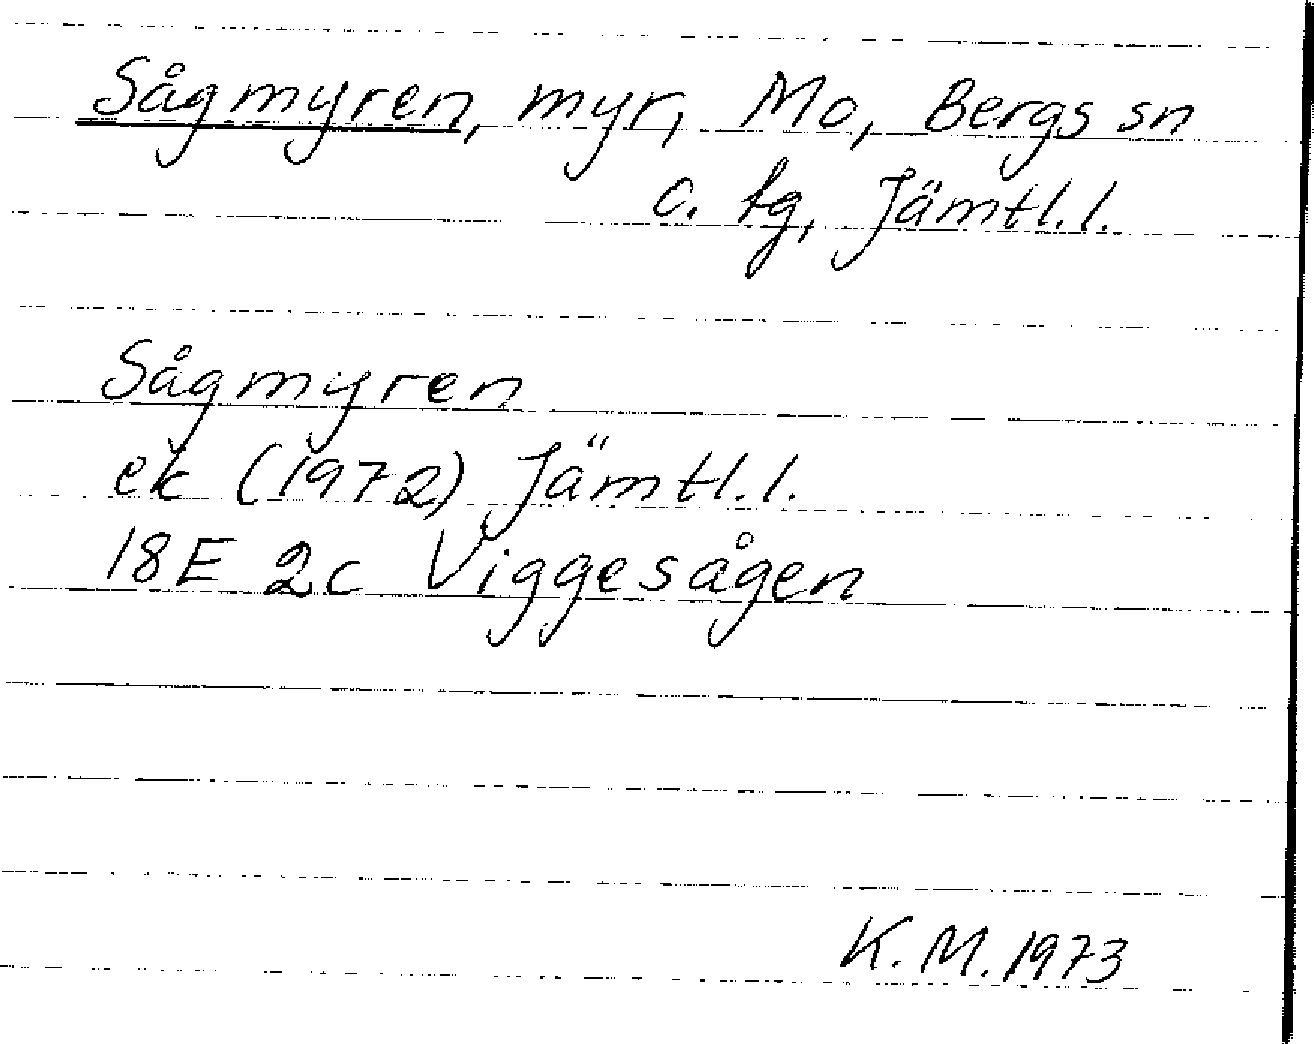 Sågmyren, myr, Mo, Bergs sn
o. tg, Jämtl.l.
Sågmyren
ek (1972) Jämtl.l.
18E 2c Viggesågen
K.M. 1973